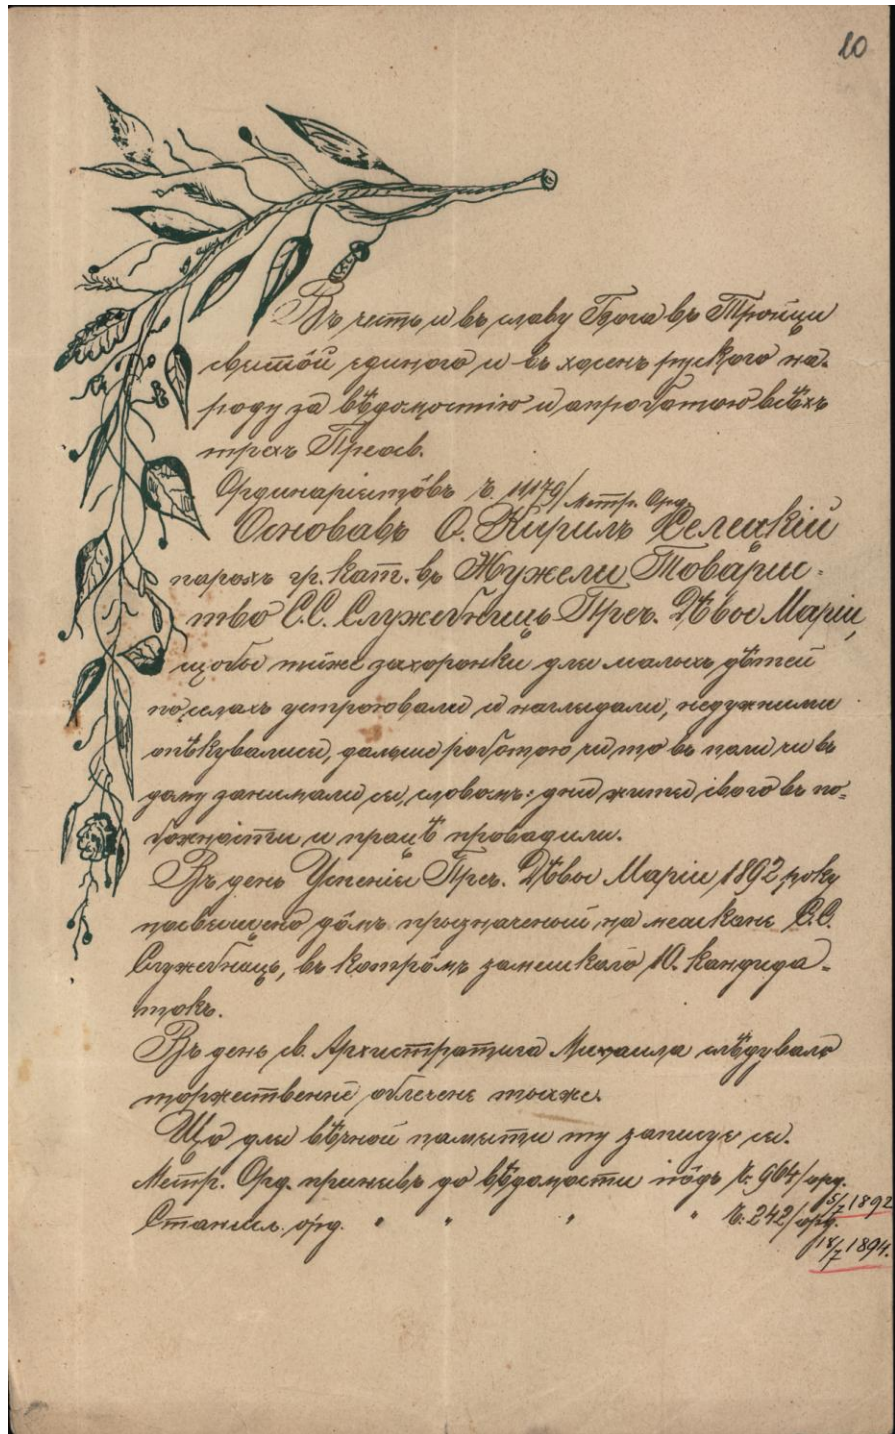 10
Въ честь и въ славу Бога въ Тройци
святой единого и въ хосенъ руского на-
роду за вѣдомостію и апробатою всѣхъ
трехъ Преосв.
Ординаріятôвъ ч. 11179/Метр. Орд.
Основавъ О. Кирилъ Селецкій
парохъ гр. кат. въ Жужели Товарис-
тво С.С. Служебниць Преч. Дѣвы Маріи,
щобы тіиже захоронки для малыхъ дѣтей
по селахъ устроювали и наглядали, недужними
опѣкувалися, дальше роботою чи то въ поли чи въ
дому занимали ся, словомъ: дни житя свого въ по-
божности и працѣ провадили.
Въ день Успенія Преч. Дѣвы Маріи 1892 року
посвящено дôмъ призначеный на мешкане С.С.
Служебниць, въ котрôмъ замешкало 10. кандида-
токъ.
Въ день св. Архистратига Михаила слѣдувало
торжественне облечене тыхже.
Що для вѣчной памяти ту записуе ся.
Метр. Орд. принявъ до вѣдомости пôдъ ч. 964/орд.
5/7 1892
Станисл. орд. " " " " ч. 242/орд.
18/7 1894.